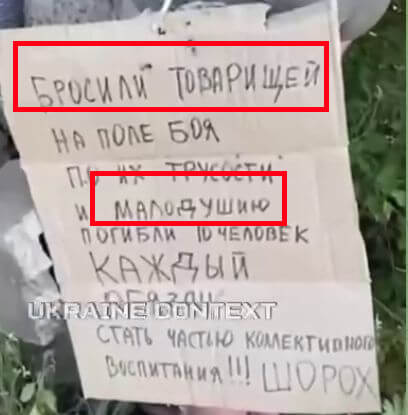 БРОСИЛИ ТОВАРИЩЕЙ
НА ПОЛЕ БОЯ
ПО ИХ ТРУСОСТИ
И МАЛОДУШИЮ
ПОГИБЛИ 10 ЧЕЛОВЕК
КАЖДЫЙ
ОБЯЗАН
UKRAINE CONTEXT
СТАТЬ ЧАСТЬЮ КОЛЛЕКТИВНОГО
ВОСПИТАНИЯ!!! ШОРОХ